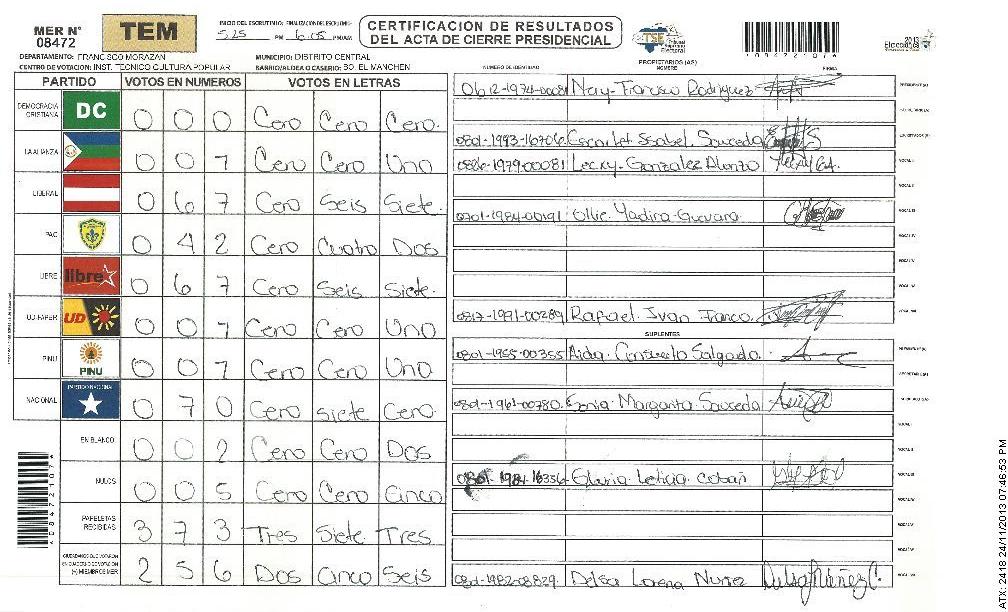 MER N° 08472
TEM
INICIO DEL ESCRUTINIO: 5:25 PM FINALIZACION DEL ESCRUTINIO: 6:05 PM/AM
CERTIFICACION DE RESULTADOS
DEL ACTA DE CIERRE PRESIDENCIAL
TSE Tribunal Supremo Electoral
2013 Elecciones
DEPARTAMENTO: FRANCISCO MORAZAN
MUNICIPIO: DISTRITO CENTRAL
CENTRO DE VOTACION: INST. TECNICO CULTURA POPULAR
BARRIO/ALDEA O CASERIO: BO. EL MANCHEN
PARTIDO VOTOS EN NUMEROS VOTOS EN LETRAS
DEMOCRACIA CRISTIANA DC 0 0 0 Cero Cero Cero.
LA ALIANZA 0 0 1 Cero Cero Uno
LIBERAL 0 6 7 Cero Seis Siete.
PAC 0 4 2 Cero Cuatro Dos
LIBRE libre 0 6 7 Cero Seis Siete.
UD-FAPER UD 0 0 1 Cero Cero Uno
PINU PINU 0 0 1 Cero Cero Uno
NACIONAL PARTIDO NACIONAL 0 7 0 Cero siete Cero.
EN BLANCO 0 0 2 Cero Cero Dos
NULOS 0 0 5 Cero Cero Cinco
PAPELETAS RECIBIDAS 3 7 3 Tres Siete Tres
CIUDADANOS QUE VOTARON EN CUADERNO DE VOTACION (+) MIEMBROS MER 2 5 6 Dos Cinco Seis
PROPIETARIOS (AS)
NUMERO DE IDENTIDAD NOMBRE FIRMA
Rodriguez PRESIDENTE(A)
SECRETARIO(A)
0801-1993-16706 Isabel Sauceda ESCRUTADOR(A)
1979-00081 Gonzalez Alonzo VOCAL I
VOCAL II
0801-1984-00191 Ollie Yadira Guevara VOCAL III
VOCAL IV
VOCAL V
VOCAL VI
1991-00289 Rafael Ivan VOCAL VII
SUPLENTES
0801-1955-00355 Aida Consuelo Salgado. PRESIDENTE(A)
SECRETARIO(A)
0801-1961-00780 Sonia Margarita Sauceda ESCRUTADOR(A)
VOCAL I
VOCAL II
1984-16356 Gloria Leticia VOCAL III
VOCAL IV
VOCAL V
VOCAL VI
0801-1982-08829 Delsa Lorena Nuñez VOCAL VII
*08472107*
ATX: 2418 24/11/2013 07:46:53 PM